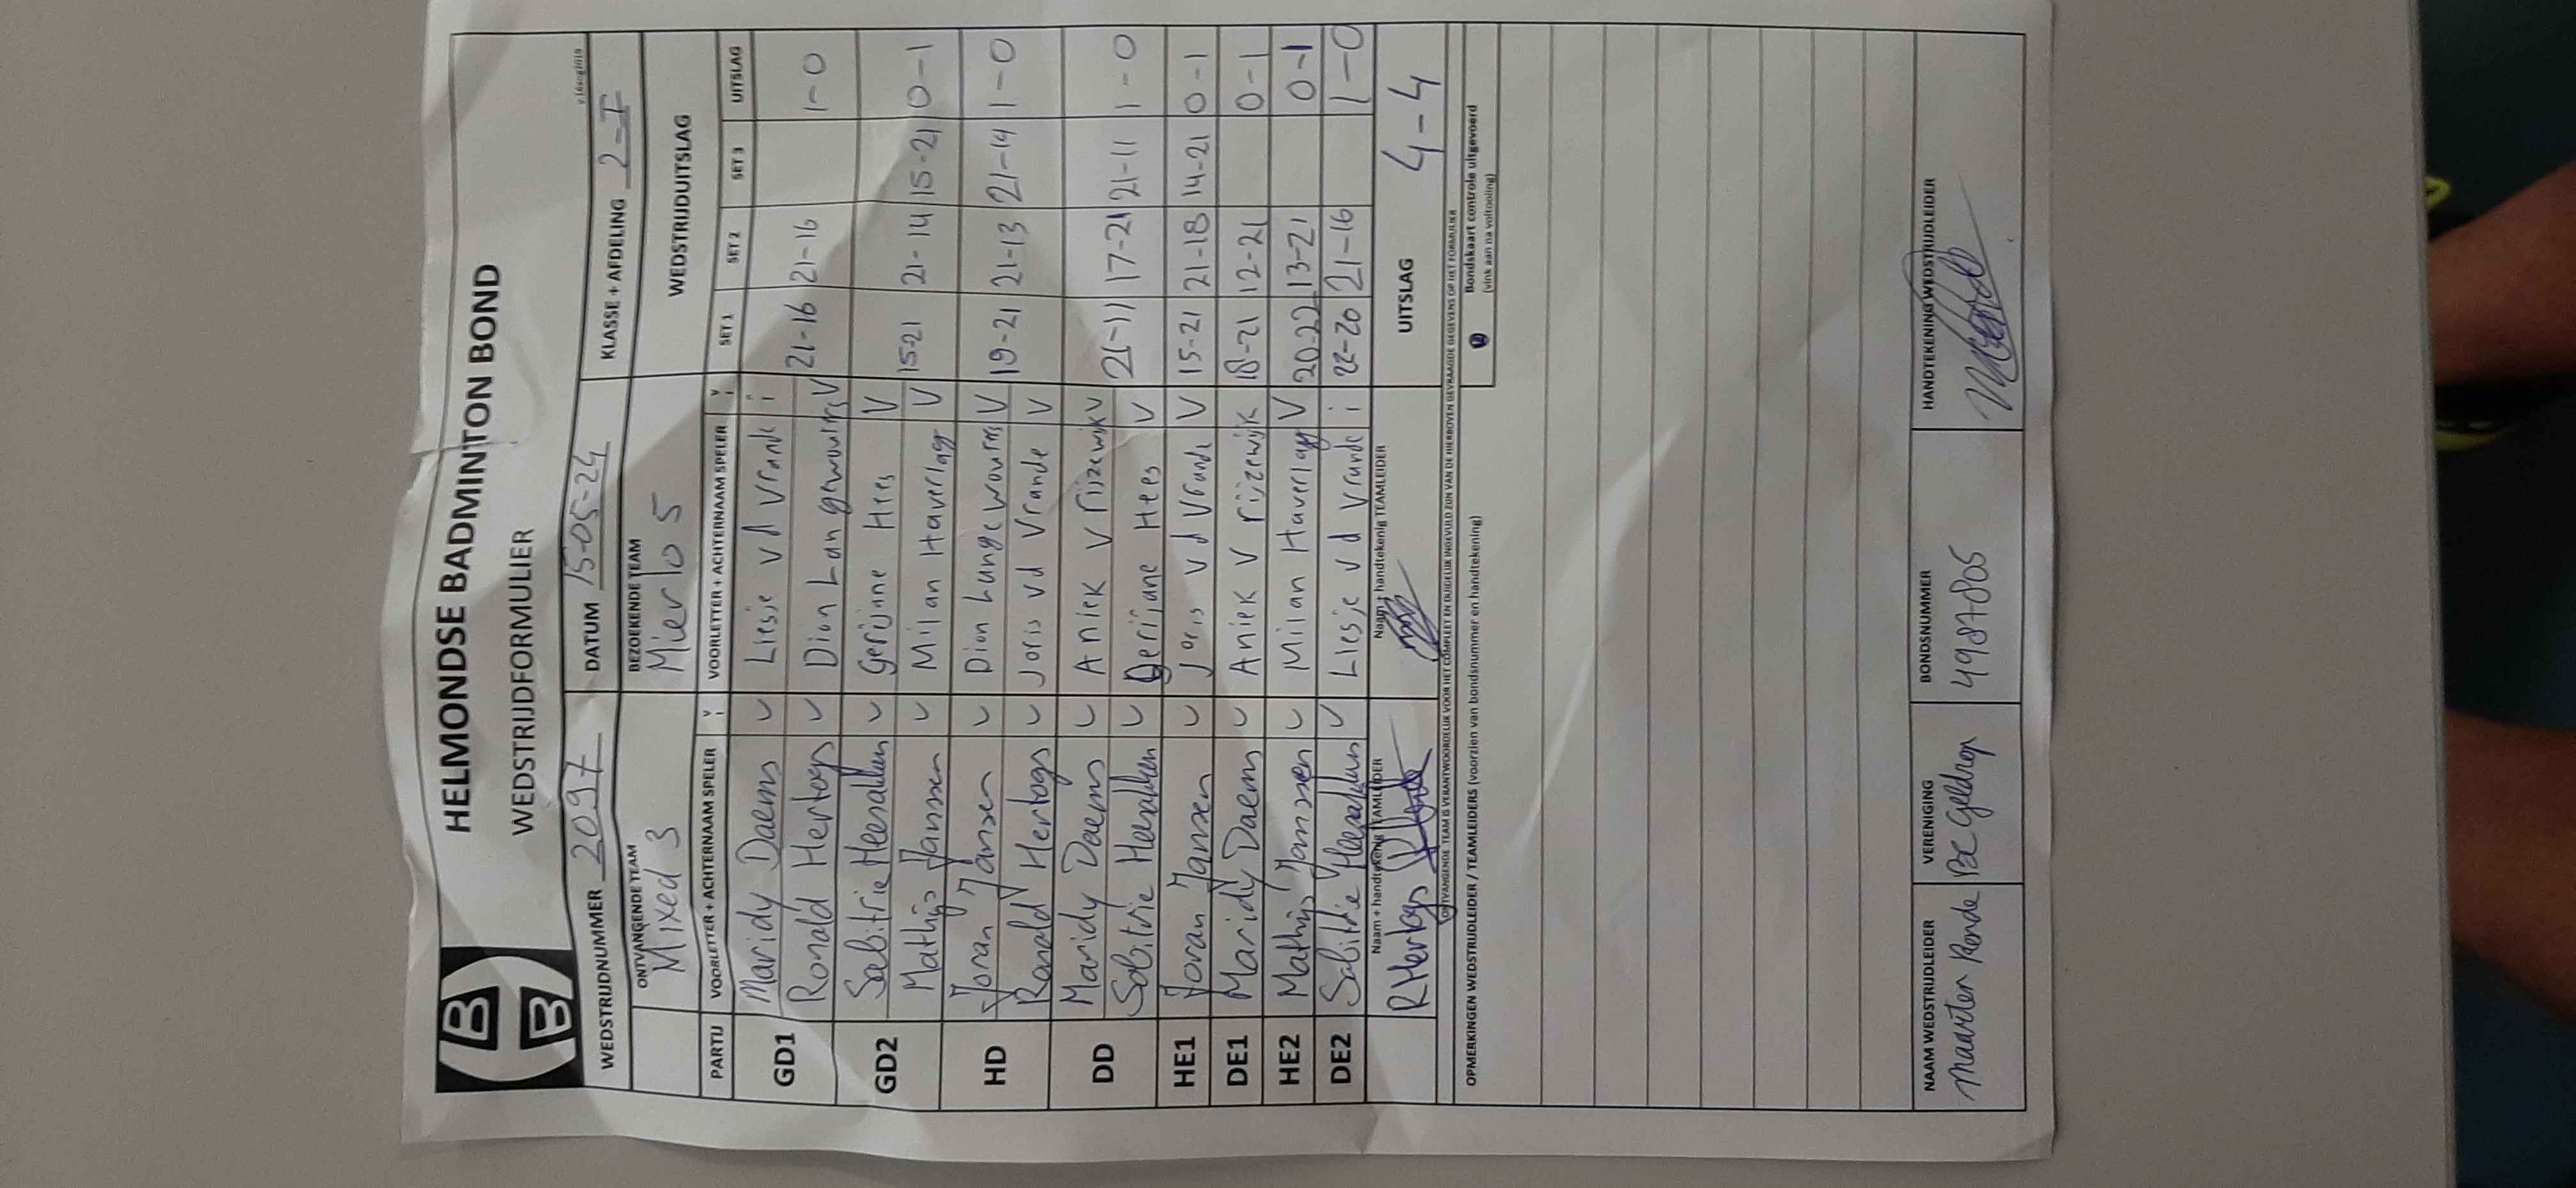 HELMONDSE BADMINTON BOND
WEDSTRIJDFORMULIER
v16aug2018
WEDSTRIJDNUMMER 2097 DATUM 15-05-24 KLASSE + AFDELING 2-I
ONTVANGENDE TEAM BEZOEKENDE TEAM WEDSTRIJDUITSLAG
Mixed 3 Mierlo 5
PARTIJ VOORLETTER + ACHTERNAAM SPELER V I VOORLETTER + ACHTERNAAM SPELER V I SET 1 SET 2 SET 3 UITSLAG
GD1 Maridy Daems V Liesje vd Vrande i
Ronald Hertogs V Dion Langewouters V 21-16 21-16 1-0
GD2 Sabitrie Heesakkers V Gerijanne Hees V
Mathijs Janssen V Milan Haverlag V 15-21 21-14 15-21 0-1
HD Joran Jansen V Dion Langewouters V 19-21 21-13 21-14 1-0
Ronald Hertogs V Joris vd Vrande V
DD Maridy Daems V Aniek Vrijzewijk V
Sabitrie Heesakkers V Gerijane Hees V 21-11 17-21 21-11 1-0
HE1 Joran Jansen V Joris vd Vrande V 15-21 21-18 14-21 0-1
DE1 Maridy Daems V Aniek Vrijzewijk 18-21 12-21 0-1
HE2 Mathijs Janssen V Milan Haverlag V 20-22 13-21 0-1
DE2 Sabitrie Heesakkers V Liesje vd Vrande i 22-20 21-16 1-0
Naam + handtekenig TEAMLEIDER Naam + handtekenig TEAMLEIDER
R Hertogs UITSLAG 4-4
ONTVANGENDE TEAM IS VERANTWOORDELIJK VOOR HET COMPLEET EN DUIDELIJK INGEVULD ZIJN VAN DE HIERBOVEN GEVRAAGDE GEGEVENS OP HET FORMULIER
OPMERKINGEN WEDSTRIJDLEIDER / TEAMLEIDERS (voorzien van bondsnummer en handtekening)
Bondskaart controle uitgevoerd
(vink aan na voltooiing)
NAAM WEDSTRIJDLEIDER VERENIGING BONDSNUMMER HANDTEKENING WEDSTRIJDLEIDER
Maarten Rende BC Geldrop 4987805